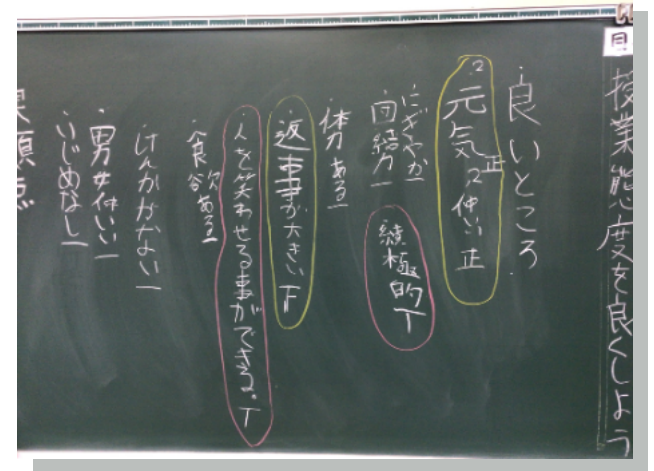 授業態度を良くしよう
良いところ
元気正 仲いい正
にぎやか
団結力一
積極的T
体力ある一
返事が大きい下
人を笑わせる事ができる。T
食欲ある一
けんかがない一
男女仲いい一
いじめなし一